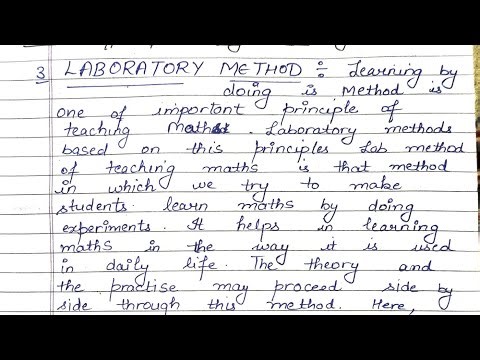 3 LABORATORY METHOD :- Learning by
doing is Method is
one of important principle of
teaching Maths. Laboratory methods
based on this principles Lab method
of teaching maths is that method
in which we try to make
students learn maths by doing
experiments. It helps in learning
maths in the way it is used
in daily life. The theory and
the practise may proceed side by
side through this method. Here,